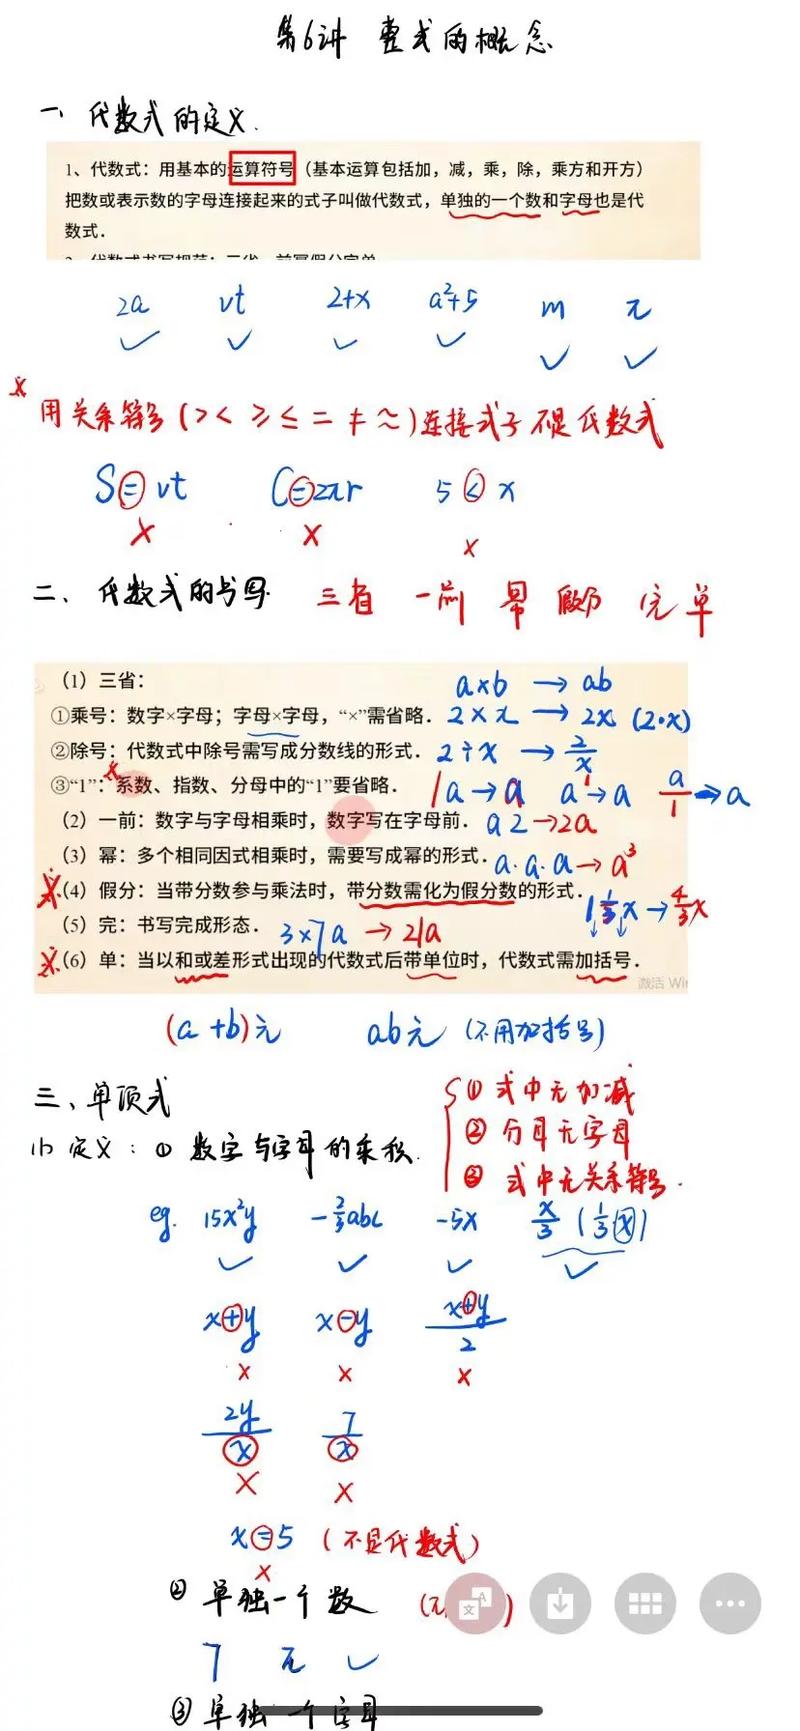 第6讲 整式的概念
一、代数式的定义.
1、代数式：用基本的运算符号（基本运算包括加，减，乘，除，乘方和开方）
把数或表示数的字母连接起来的式子叫做代数式，单独的一个数和字母也是代
数式．
2a vt 2+x a²+5 m π
✓ ✓ ✓ ✓ ✓ ✓
用关系符号(> < ≥ ≤ = ≠ ≈)连接式子不是代数式
S=vt C=2πr 5<x
× × ×
二、代数式的书写. 三省 一前 幂 假分 完 单
（1）三省： a×b → ab
①乘号：数字×字母；字母×字母，“×”需省略． 2×x → 2x (2·x)
②除号：代数式中除号需写成分数线的形式． 2÷x → 2/x
③“1”：系数、指数、分母中的“1”要省略． 1a→a a¹→a a/1→a
（2）一前：数字与字母相乘时，数字写在字母前． a2→2a
（3）幂：多个相同因式相乘时，需要写成幂的形式． a·a·a→a³
（4）假分：当带分数参与乘法时，带分数需化为假分数的形式． 1⅓x→4/3x
（5）完：书写完成形态． 3×7a → 21a
（6）单：当以和或差形式出现的代数式后带单位时，代数式需加括号．
激活 Win
(a+b)元 ab元 (不用加括号)
三、单项式
(1) 定义：① 数字与字母的乘积.
① 式中无加减
② 分母无字母
③ 式中无关系符号.
eg. 15x²y -2/3abc -5x x/3 (1/3x)
✓ ✓ ✓ ✓
x+y x-y x+y/2
× × ×
2y/x 7/x
× ×
x=5 (不是代数式)
×
② 单独一个数 (π )
7 π ✓
③ 单独一个字母